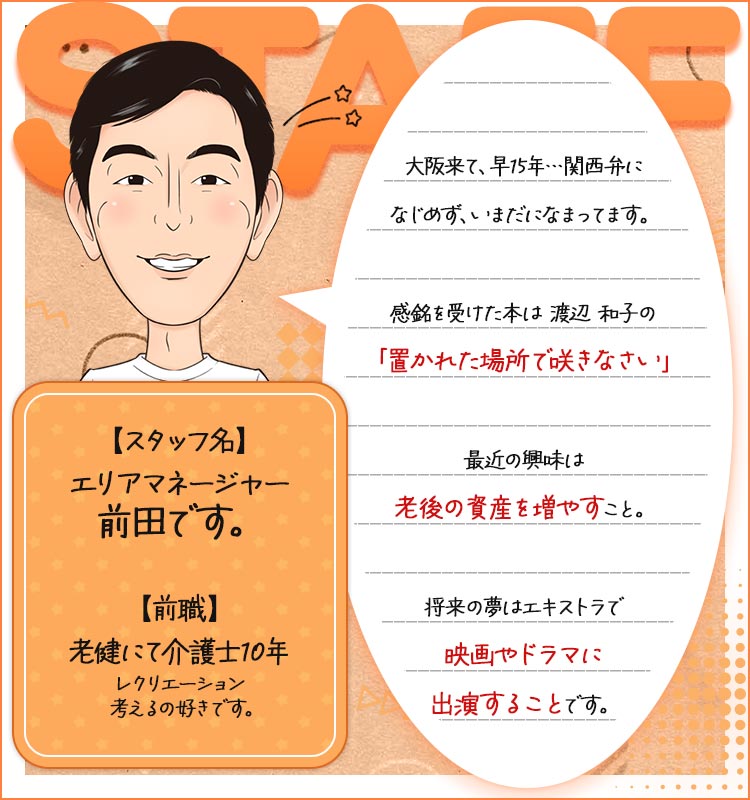 STAFF
大阪来て、早15年…関西弁に
なじめず、いまだになまってます。
感銘を受けた本は 渡辺 和子の
「置かれた場所で咲きなさい」
最近の興味は
老後の資産を増やすこと。
将来の夢はエキストラで
映画やドラマに
出演することです。
【スタッフ名】
エリアマネージャー
前田です。
【前職】
老健にて介護士10年
レクリエーション
考えるの好きです。